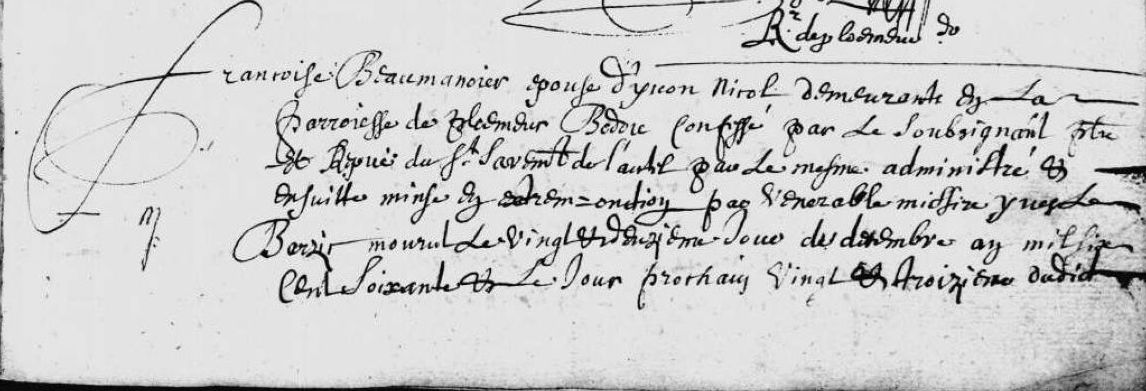 Rr de ploemeur do
Francoise Beaumanoier epouse d'yvon Nicol demeurante en La
parroiesse de pleemeur Bodou Confessé par Le Soubsignant ptre
Et Repuë du St Sacremt de l'autel par Le mesme administré Et
ensuitte minse en extrem-onction par Venerable missire yves Le
Barzic mourut Le Vingt Et deuzieme Jour de decembre an mil six
Cent Soixante Et Le Jour prochain Vingt Et troizieme dudict